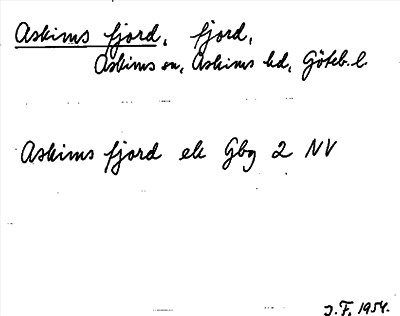 Askims fjord, fjord,
Askims sn, Askims hd, Göteb. l.
Askims fjord ek Gbg 2 NV
J.F. 1954.